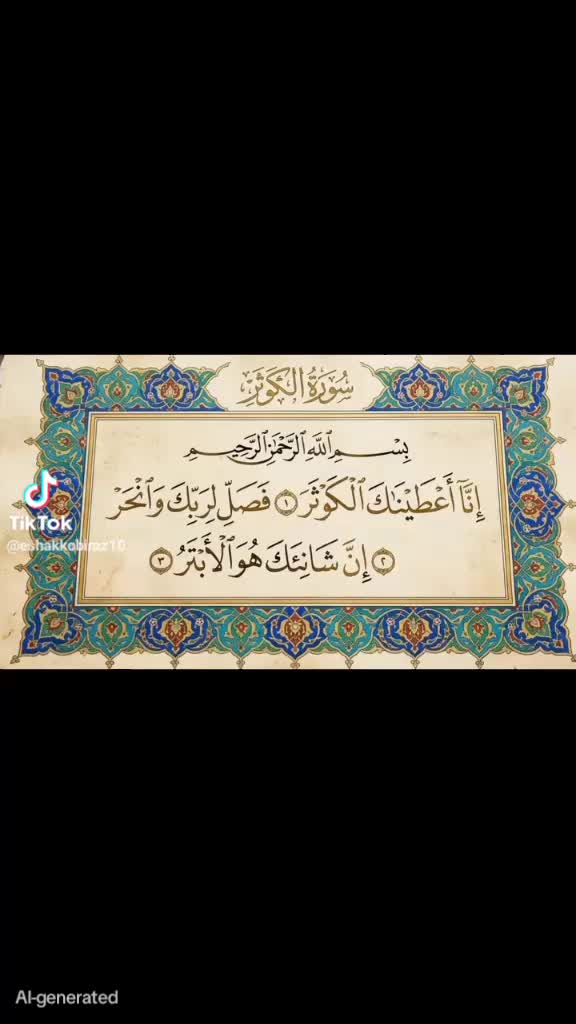 سُورَةُ الكَوْثَرِ
بِسْمِ ٱللَّهِ ٱلرَّحْمَٰنِ ٱلرَّحِيمِ
إِنَّآ أَعْطَيْنَٰكَ ٱلْكَوْثَرَ ١ فَصَلِّ لِرَبِّكَ وَٱنْحَرْ
٢ إِنَّ شَانِئَكَ هُوَ ٱلْأَبْتَرُ ٣
TikTok
@eshakkobiraz10
AI-generated